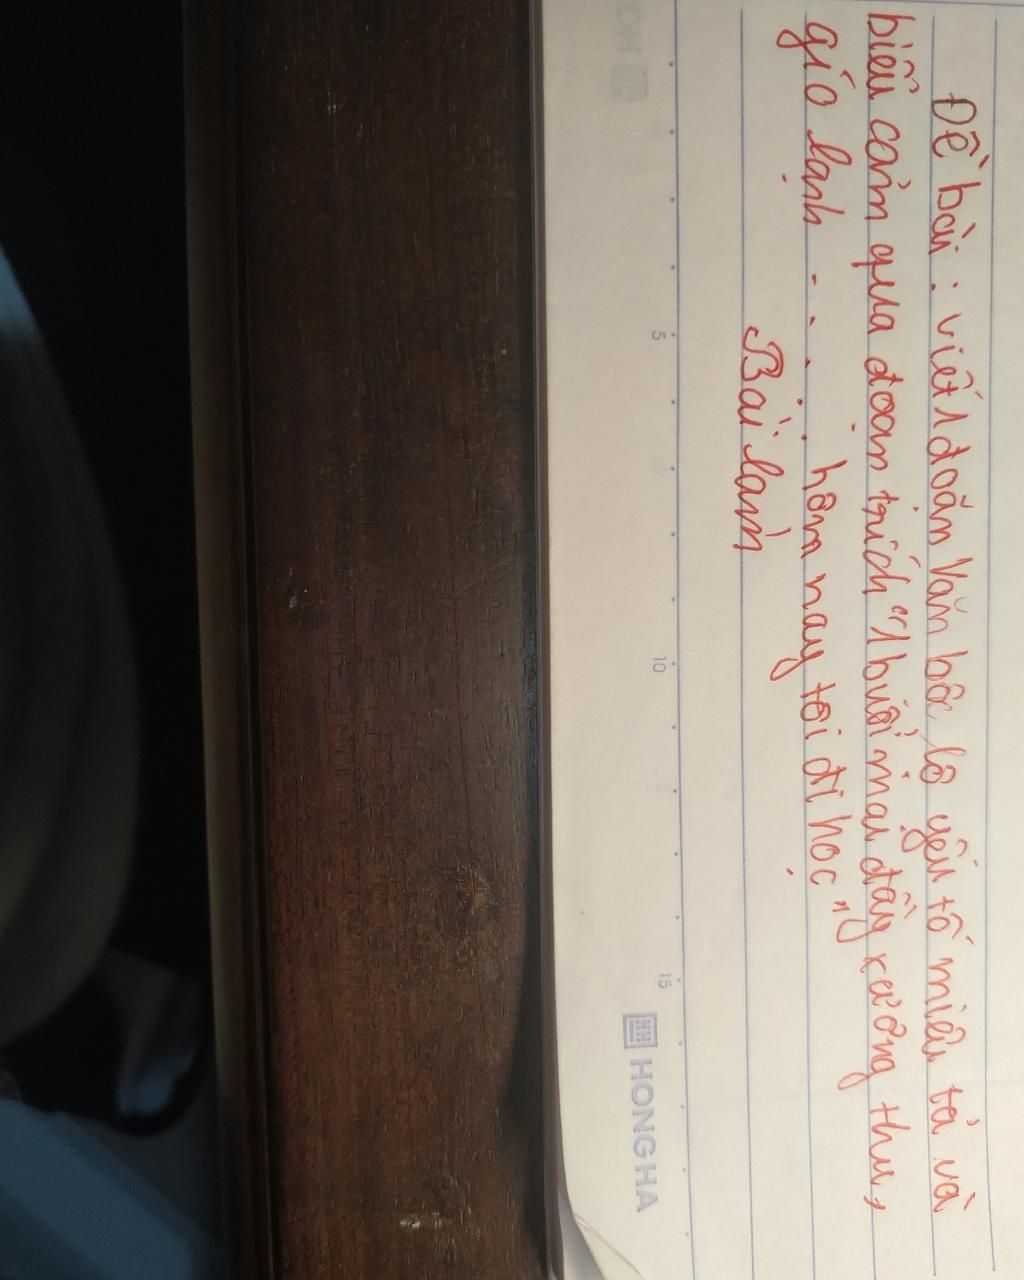 Đề bài : viết 1 đoăn văn bôc lô yếu tố miêu tả và
biểu cảm qua đoạn trích "1 buổi mai đầy xương thu,
gío lạnh - - . . . hôm nay tôi đi học"
Bài làm
5
10
15
HONG HA